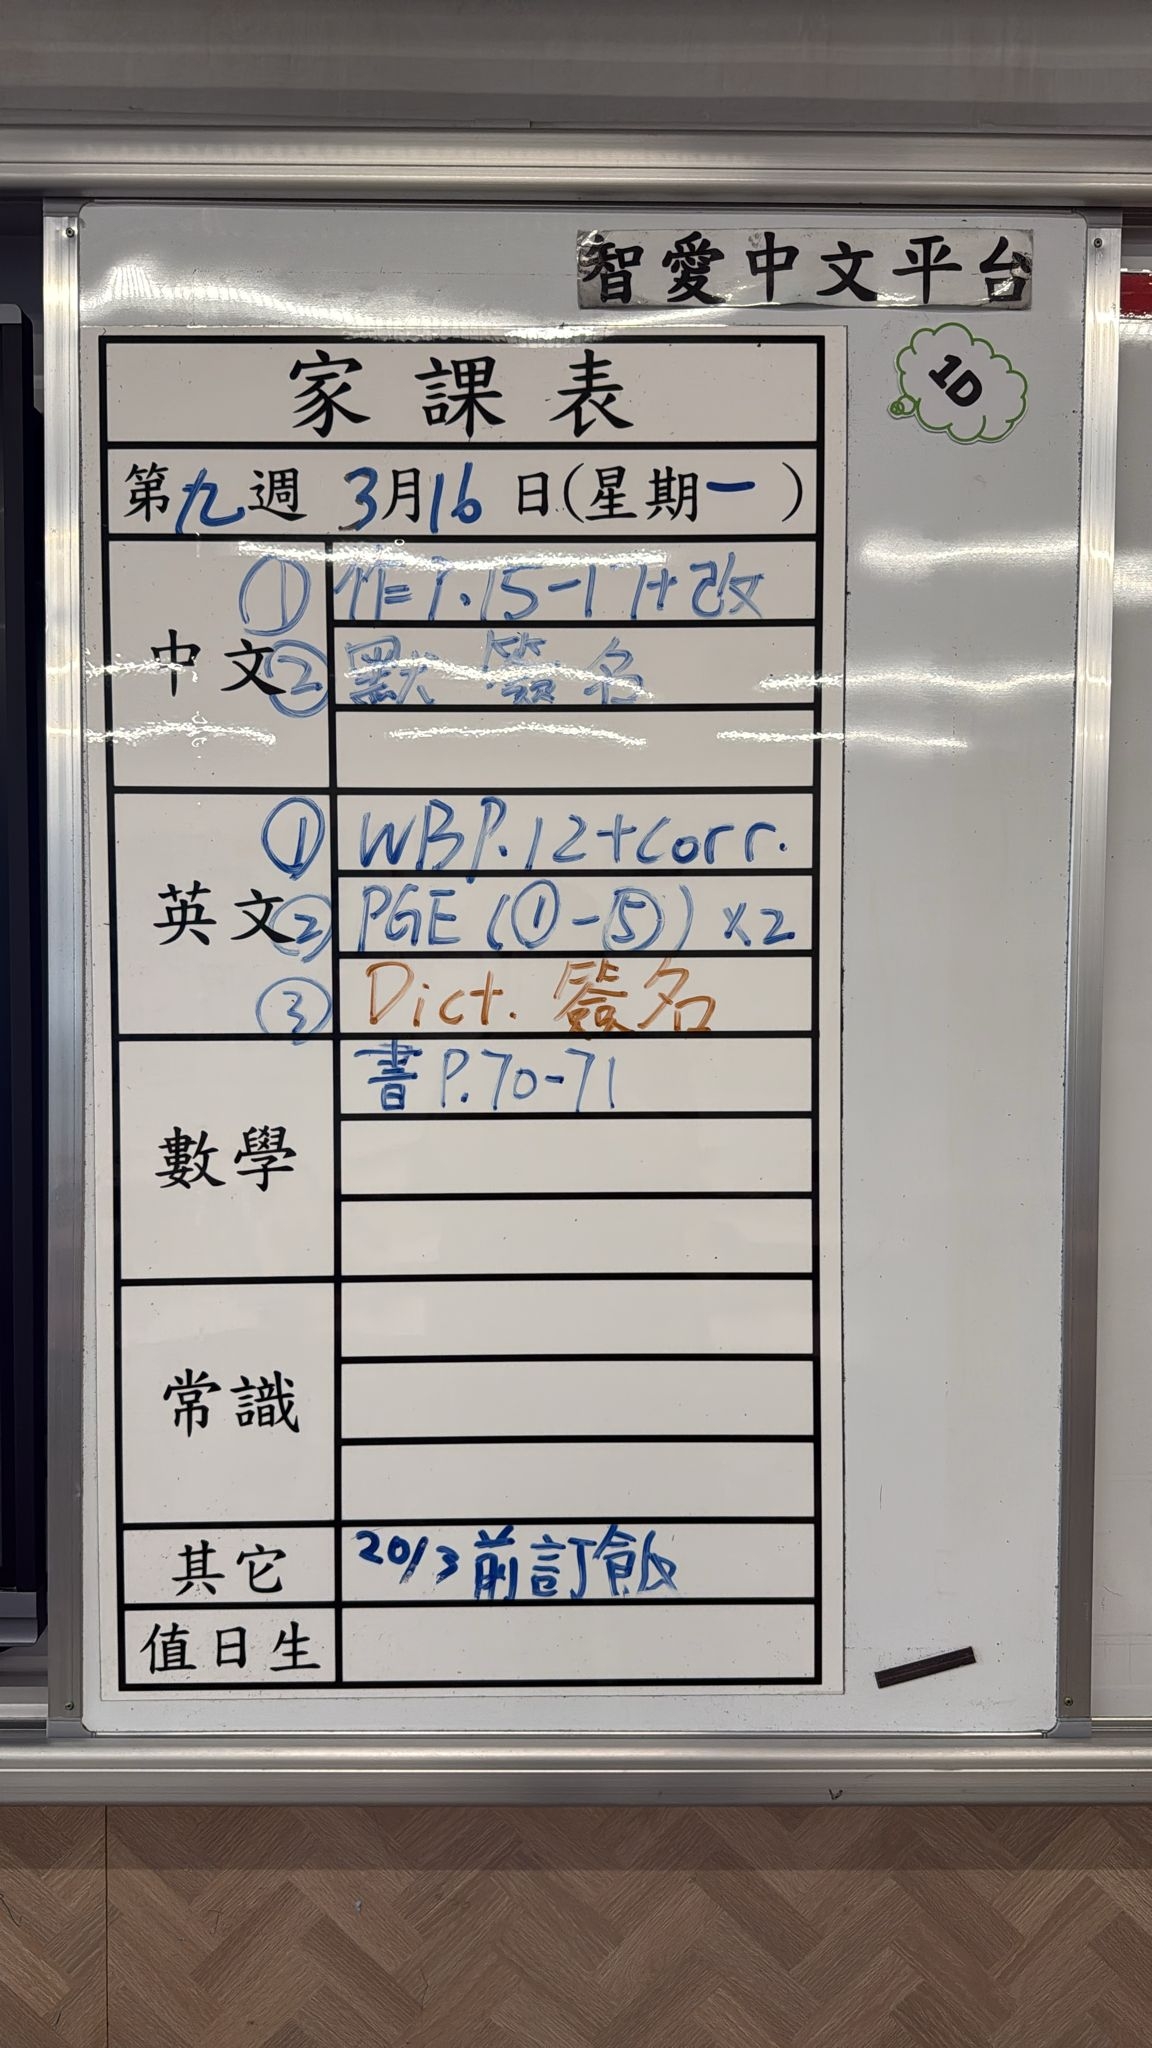 智愛中文平台
1D
家課表
第九週 3月16日(星期一)
中文
① 作二 P.15-17+改
② 默 簽名
英文
① WB P.12+Corr.
② PGE (①-⑤) x2
③ Dict. 簽名
數學
書 P.70-71
常識
其它
20/3前訂飯
值日生